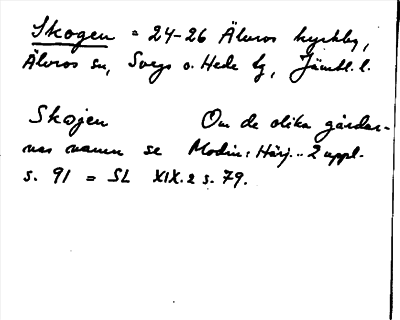 Skogen = 24-26 Älvros kyrkby,
Älvros sn, Svegs o. Hede tg, Jämtl. l.
Skojen Om de olika gårdar-
nas namn se Modin: Härj... 2 uppl.
s. 91 = SL XIX.2 s. 79.